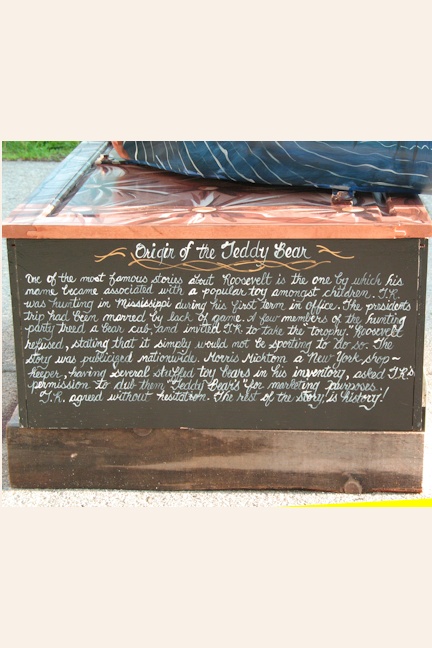 Origin of the Teddy Bear
One of the most famous stories about Roosevelt is the one by which his
name became associated with a popular toy amongst children. T.R.
was hunting in Mississippi during his first term in office. The president's
trip had been marred by lack of game. A few members of the hunting
party treed a bear cub, and invited T.R. to take the "torophy." Roosevelt
refused, stating that it simply would not be sporting to do so. The
story was publicized nationwide. Morris Michtom a New York shop~
keeper, having several stuffed toy bears in his inventory, asked T.R.'s
permission to dub them "Teddy Bear's" for marketing purposes.
T.R. agreed without hesitation. The rest of the story, is history!